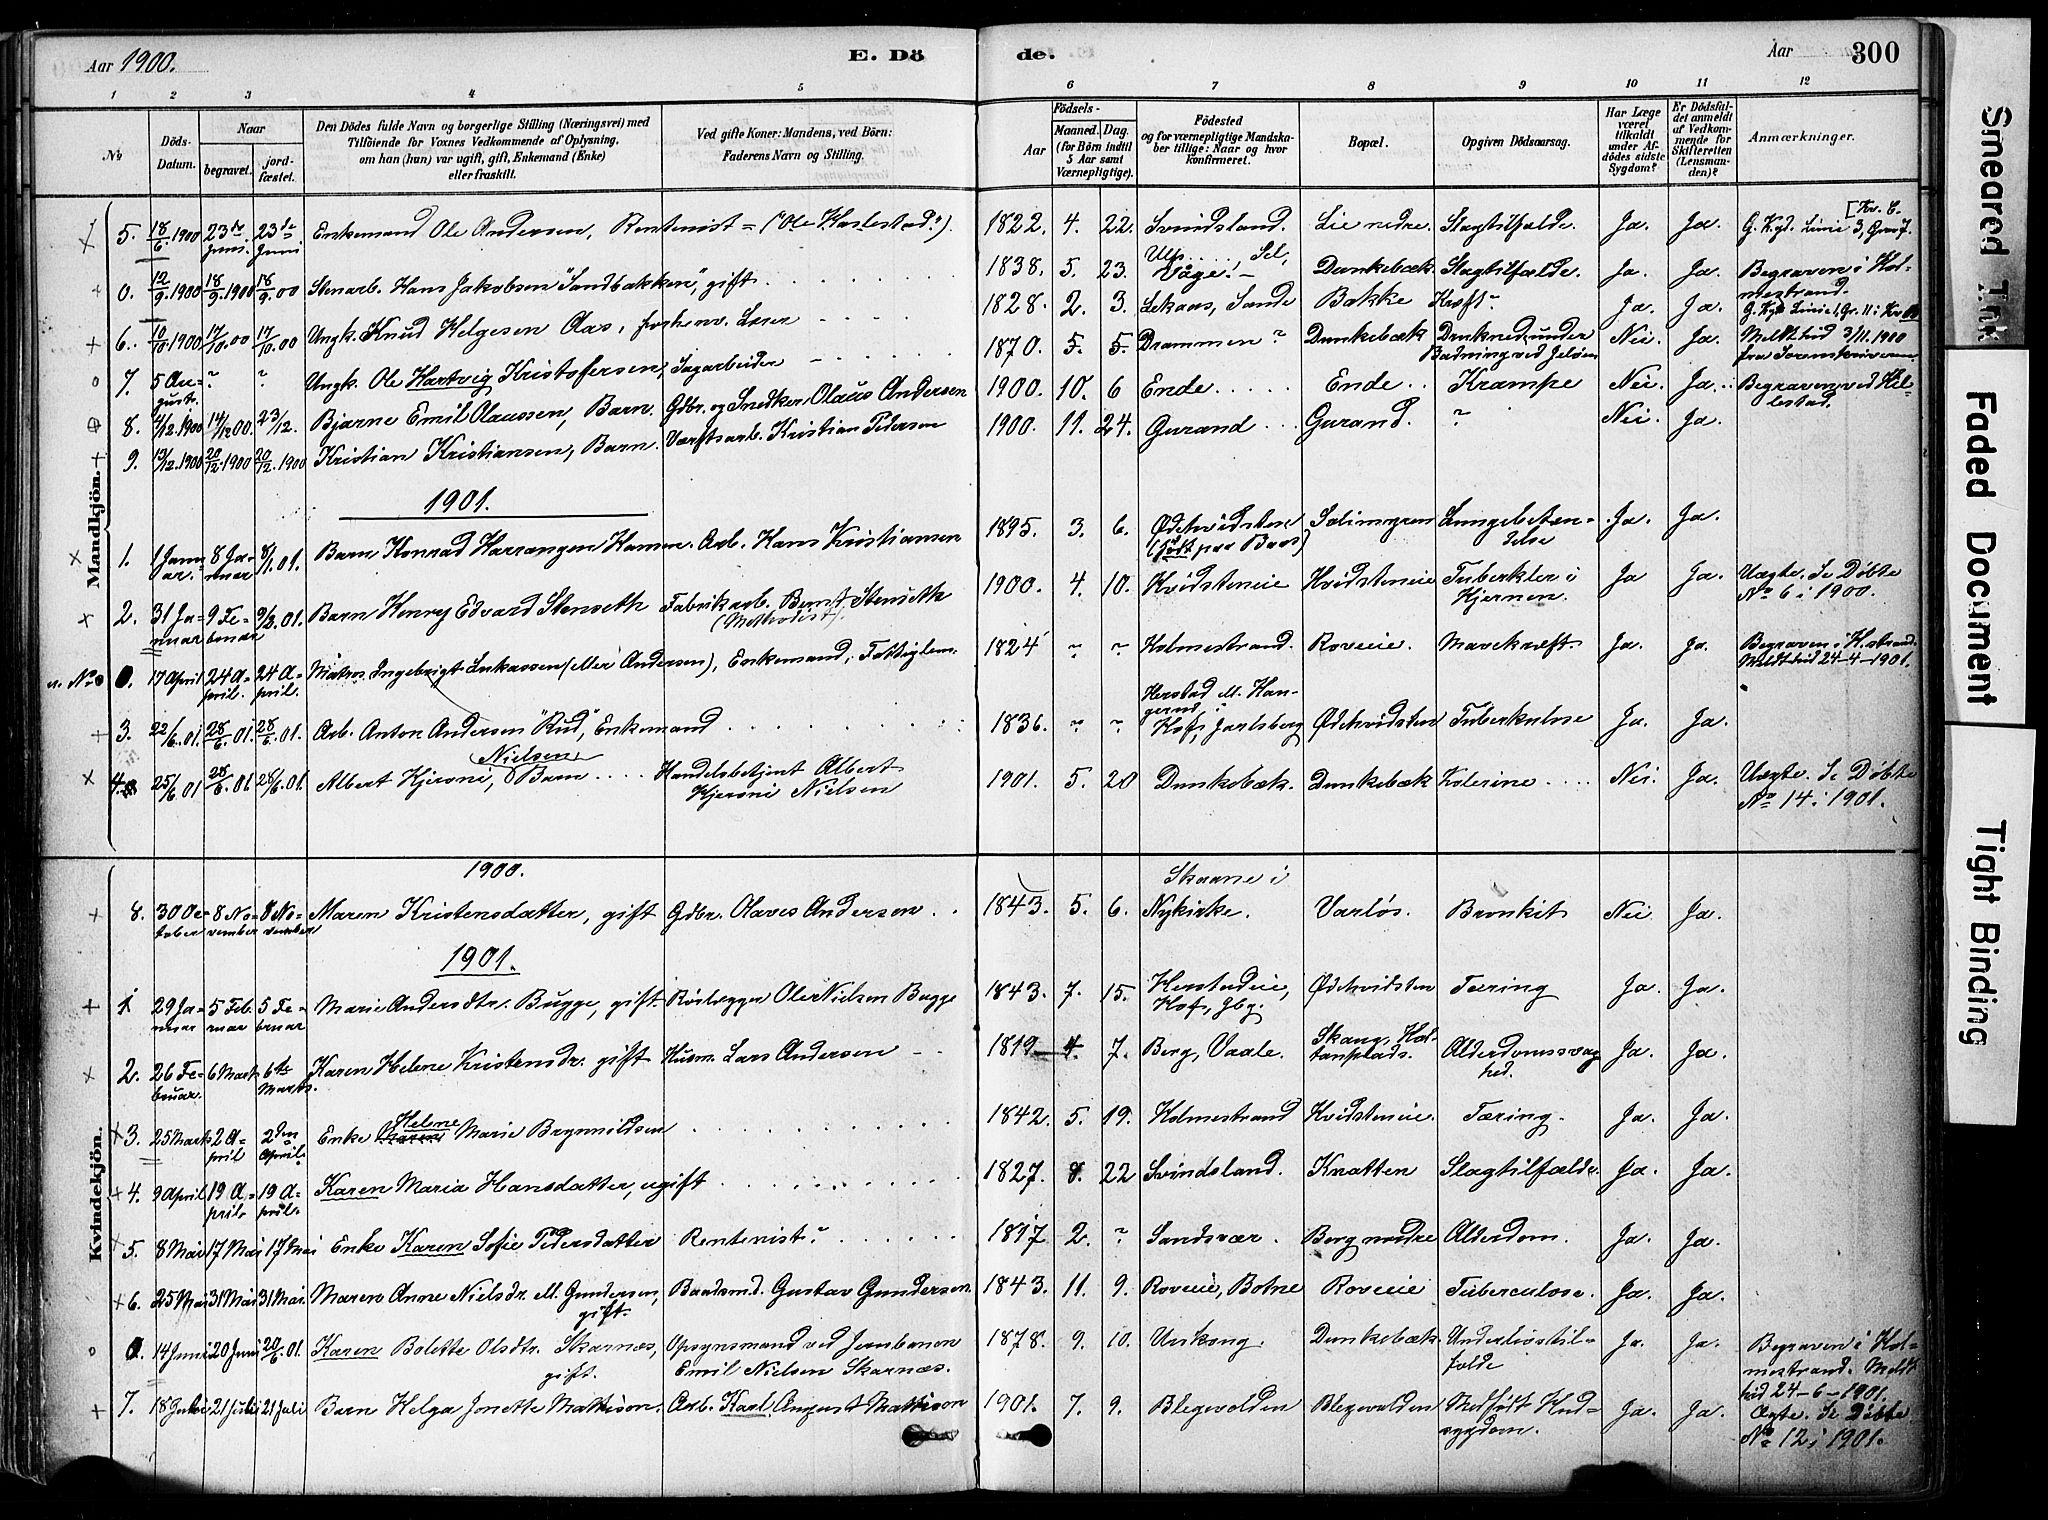 Aar 1900.
E. Döde.
Aar
300
1 2 3 4 5 6 7 8 9 10 11 12
No
Döds-Datum.
Naar
begravet.
jordfæstet.
Den Dödes fulde Navn og borgerlige Stilling (Næringsvei) med
Tilföiende for Voxnes Vedkommende af Oplysning,
om han (hun) var ugift, gift, Enkemand (Enke)
eller fraskilt.
Ved gifte Koner: Mandens, ved Börn:
Faderens Navn og Stilling.
Födsels-
Aar
Maaned. Dag.
(for Börn indtil
5 Aar samt
Værnepligtige).
Födested
og for værnepligtige Mandskaber
tillige: Naar og hvor
konfirmeret.
Bopæl.
Opgiven Dödsaarsag.
Har Læge
været
tilkaldt
under Afdödes
sidste
Sygdom?
Er Dödsfaldet
anmeldt
af Vedkommende
for
Skifteretten
(Lensmanden)?
Anmærkninger.
Mandkjön.
5. 18/6 1900 23de Juni. 23de Juni Enkemand Ole Andersen, Rentenist = ("Ole Haslestad"). 1822. 4. 22. Svindsland. Lie nedre. Slagtilfælde. Ja. Ja. G. Kgd. Linie 3, Grav 7. [Kv. C.
0. 12/9 1900 18/9 1900 18/9 00 Stenarb. Hans Jakobsen "Sandbakken", gift 1838. 5. 23. Sel, Våge. Dunkebæk. Slagtilfælde. Ja. Ja. Begraven i Holmestrand.
6. 10/10 1900 17/10 00 17/10 00 Ungk. Knud Helgesen Aas, forhenv. Lærer 1828. 2. 3. Sande Bakke Kræft? Ja. Ja. G. Kgd Linie 1, Gr. 11 i Kv. B
7. 5 August. ? ? Ungk. Ole Hartvig Kristoffersen, Sagarbeider 1870. 5. 5. Drammen ? Dunkebæk Druknede under Badning ved Jeløen Nei. Ja. Meldt hid 3/11 1900 fra Sorenskriveren
8. 4/12 1900 14/12 00. 23/12. Bjarne Emil Olaussen, Barn. Gdbr. og Snedker Olaus Andersen 1900. 10. 6 Ende Ende Krampe Nei. Ja. Begraven ved Hillestad.
9. 13/12 1900 20/12 1900 20/12 1900 Kristian Kristiansen, Barn. Værftsarb. Kristian Pedersen 1900. 11. 24. Gurand Gurand. ? Nei. Ja.
1901.
1. 1 Januar. 8 Januar 8/1 01. Barn Konrad Hansen. Arb. Hans Kristiansen 1895. 3. 6. Ødehvidsten (født paa Baas) Solimyren Lungebetændelse Ja. Ja.
2. 31 Januar 9 Februar 9/2 01. Barn Henry Edvard Stenseth Fabrikarb. Bernt Stenseth (Methodist). 1900. 4. 10. Hvidsteneie Hvidsteneie Tuberkler i Hjernen. Ja Ja. Uægte. Se Døbte No 6 i 1900.
0. 17 April 24 April. 24 April. Matros Ingebrigt Lukassen (eller Andersen), Enkemand, Fattiglem. 1824 ? ? Holmestrand. Roveie. Mavekræft. Ja. Ja. Begraven i H.strand. Meldt hid 24-4-1901.
3. 22/6 01. 28/6 01. 28/6 01. Arb. Anton Andersen "Rud", Enkemand 1836. ? ? Hof, Jarlsberg Ødehvidsten Tuberkulose Ja. Ja.
4. 25/6 01 28/6 01. 28/6 01. Albert Hjersni, Nielsen Barn Handelsbetjent Albert Hjersni Nielsen 1901. 5. 20 Dunkebæk. Dunkebæk Kolerine Nei. Ja. Uægte. Se Døbte No 14 i 1901.
Kvindekjön.
1900.
8. 30 October 8 November 8 November Maren Kristensdatter, gift Gdbr. Olaves Andersen 1843. 5. 6. Skaane i Nykirke. Varløs. Bronkit Nei. Ja.
1901.
1 29 Januar 5 Februar 5 Februar Marie Andersdtr. Bugge, gift. Rørlægger Ole Nielsen Bugge 1843. 7. 15. Herstadeie, Hof, Jbg. Ødehvidsten Tæring Ja. Ja.
2. 26 Februar. 6 Mart 6te Marts. Karen Helene Kristensdr. gift Husm. Lars Andersen 1819 4. 7. Berg, Vaale. Skaug, Holtanplads. Alderdomssvaghed. Ja. Ja.
3. 25 Mart 2 April 2den April. Enke Karen Helene Marie Brynildsen 1842. 5. 19. Holmestrand Hvidsteneie. Tæring. Ja. Ja.
4. 9 April 19 April. 19 April. Karen Maria Hansdatter, ugift 1827. 8. 22 Svindsland. Knatten Slagtilfælde. Ja. Ja.
5. 8 Mai 17 Mai 17 Mai Enke Karen Sofie Pedersdatter Rentenist? 1817 2. ? Sandsvær. Berg nedre Alderdom. Ja. Ja.
6. 25 Mai 31 Mai 31 Mai. Maren Anne Nielsdr. M. Gundersen, gift. Baadsmd. Gustav Gundersen. 1843. 11. 9. Roveie, Botne Roveie Tuberculose. Ja. Ja.
0. 14 Juni 20 Juni 20/6 01. Karen Bolette Olsdtr. Skarnæs, gift. Opsynsmand ved Jernbanen Emil Nielsen Skarnæs. 1878. 9. 10. Dunkebæk. Underlivstilfælde Ja. Ja. Begraven i Holmestrand. Meldt hid 24-6-1901.
7. 18 Juli 21 Juli 21 Juli Barn Helga Jonette Mattison. Arb. Karl August Mattison 1901. 7. 9. Blegevolden Blegevolden Medfødt Hudsygdom. Ja. Ja. Ægte. Se Døbte No 12 i 1901.
Smeared Ink
Faded Document
Tight Binding